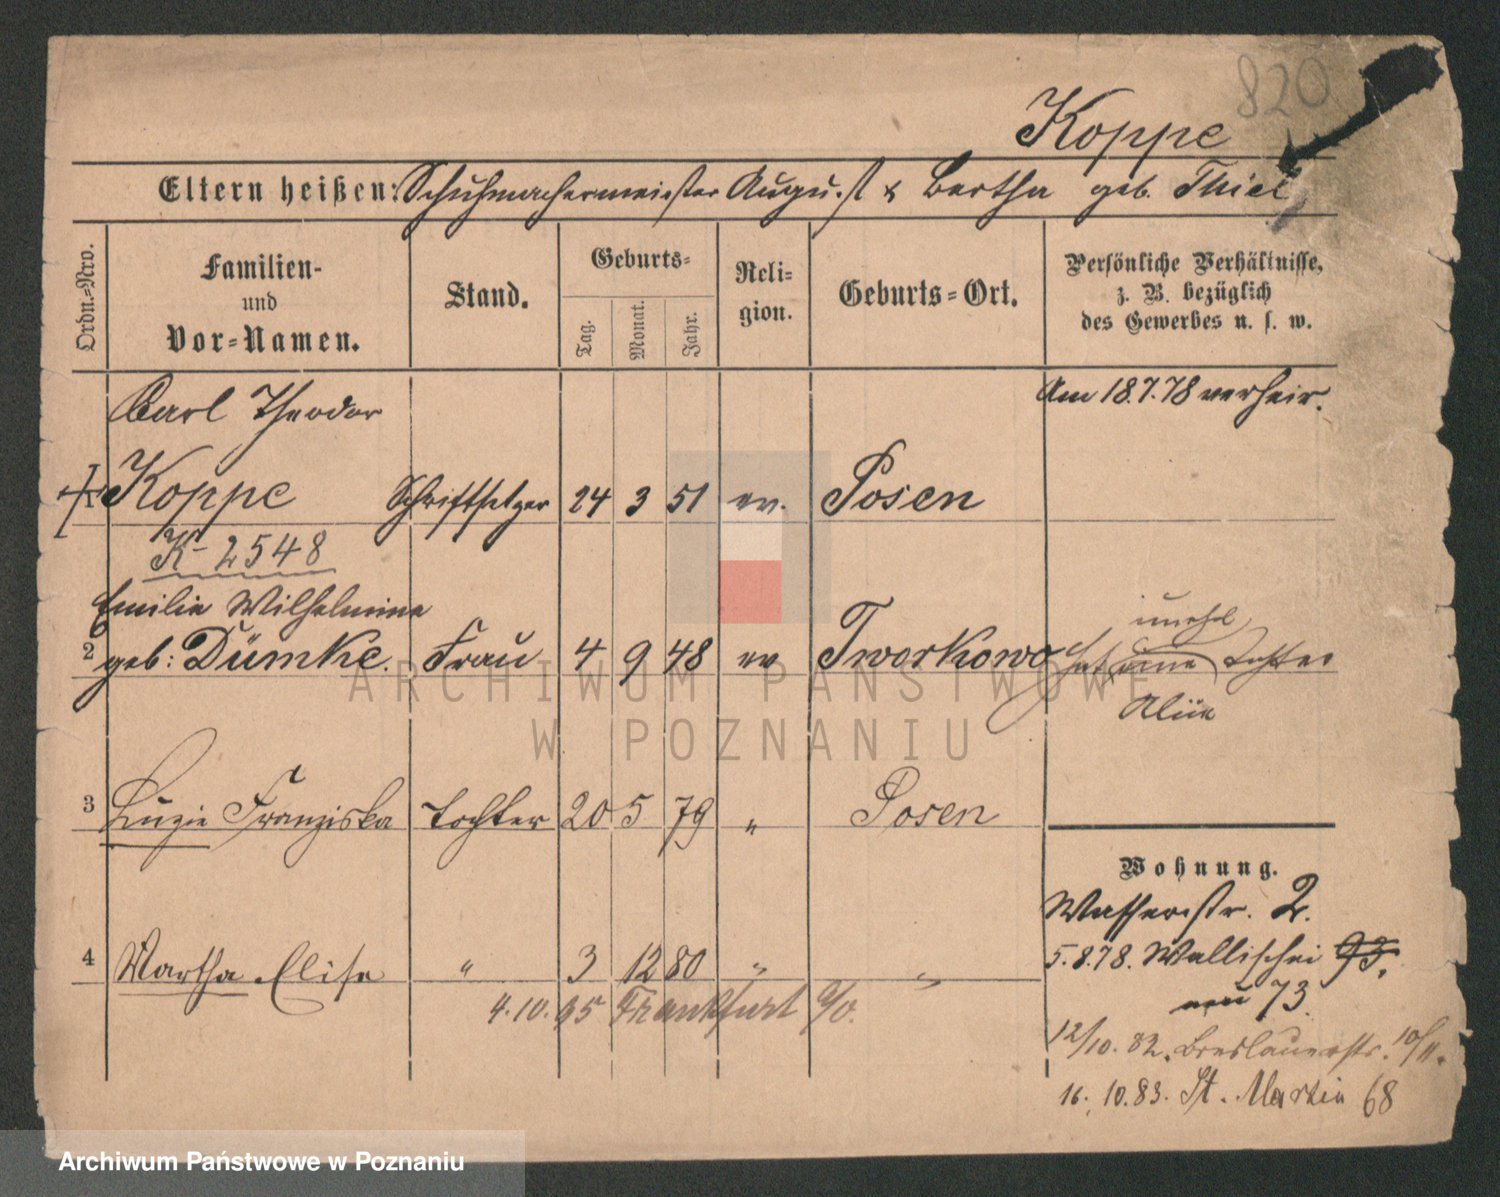 820
Koppe
Eltern heißen: Schuhmachermeister August & Bertha geb. Thiel
Ordn.-Nro.
Familien-
und
Vor-Namen.
Stand.
Geburts-
Tag.
Monat.
Jahr.
Reli-
gion.
Geburts-Ort.
Persönliche Verhältnisse,
z. B. bezüglich
des Gewerbes u. s. w.
Carl Theodor
Am 18.7.78 verheir.
1 Koppe Schriftsetzer 24 3 51 ev. Posen
K-2548
Emilie Wilhelmine
unehel
2 geb: Dümke. Frau 4 9 48 ev Tworkowo hat eine Tochter
3 Luzie Franziska Tochter 20 5 79 " Posen
Wohnung.
Wasserstr. 2.
4 Martha Elise " 3 12 80 " "
5.8.78. Wallischei 93.
neu 73.
4.10.95 Frankfurt a/O.
12/10. 82. Breslauerstr. 10/11.
16. 10.83. St. Martin 68
ARCHIWUM PAŃSTWOWE
W POZNANIU
Archiwum Państwowe w Poznaniu